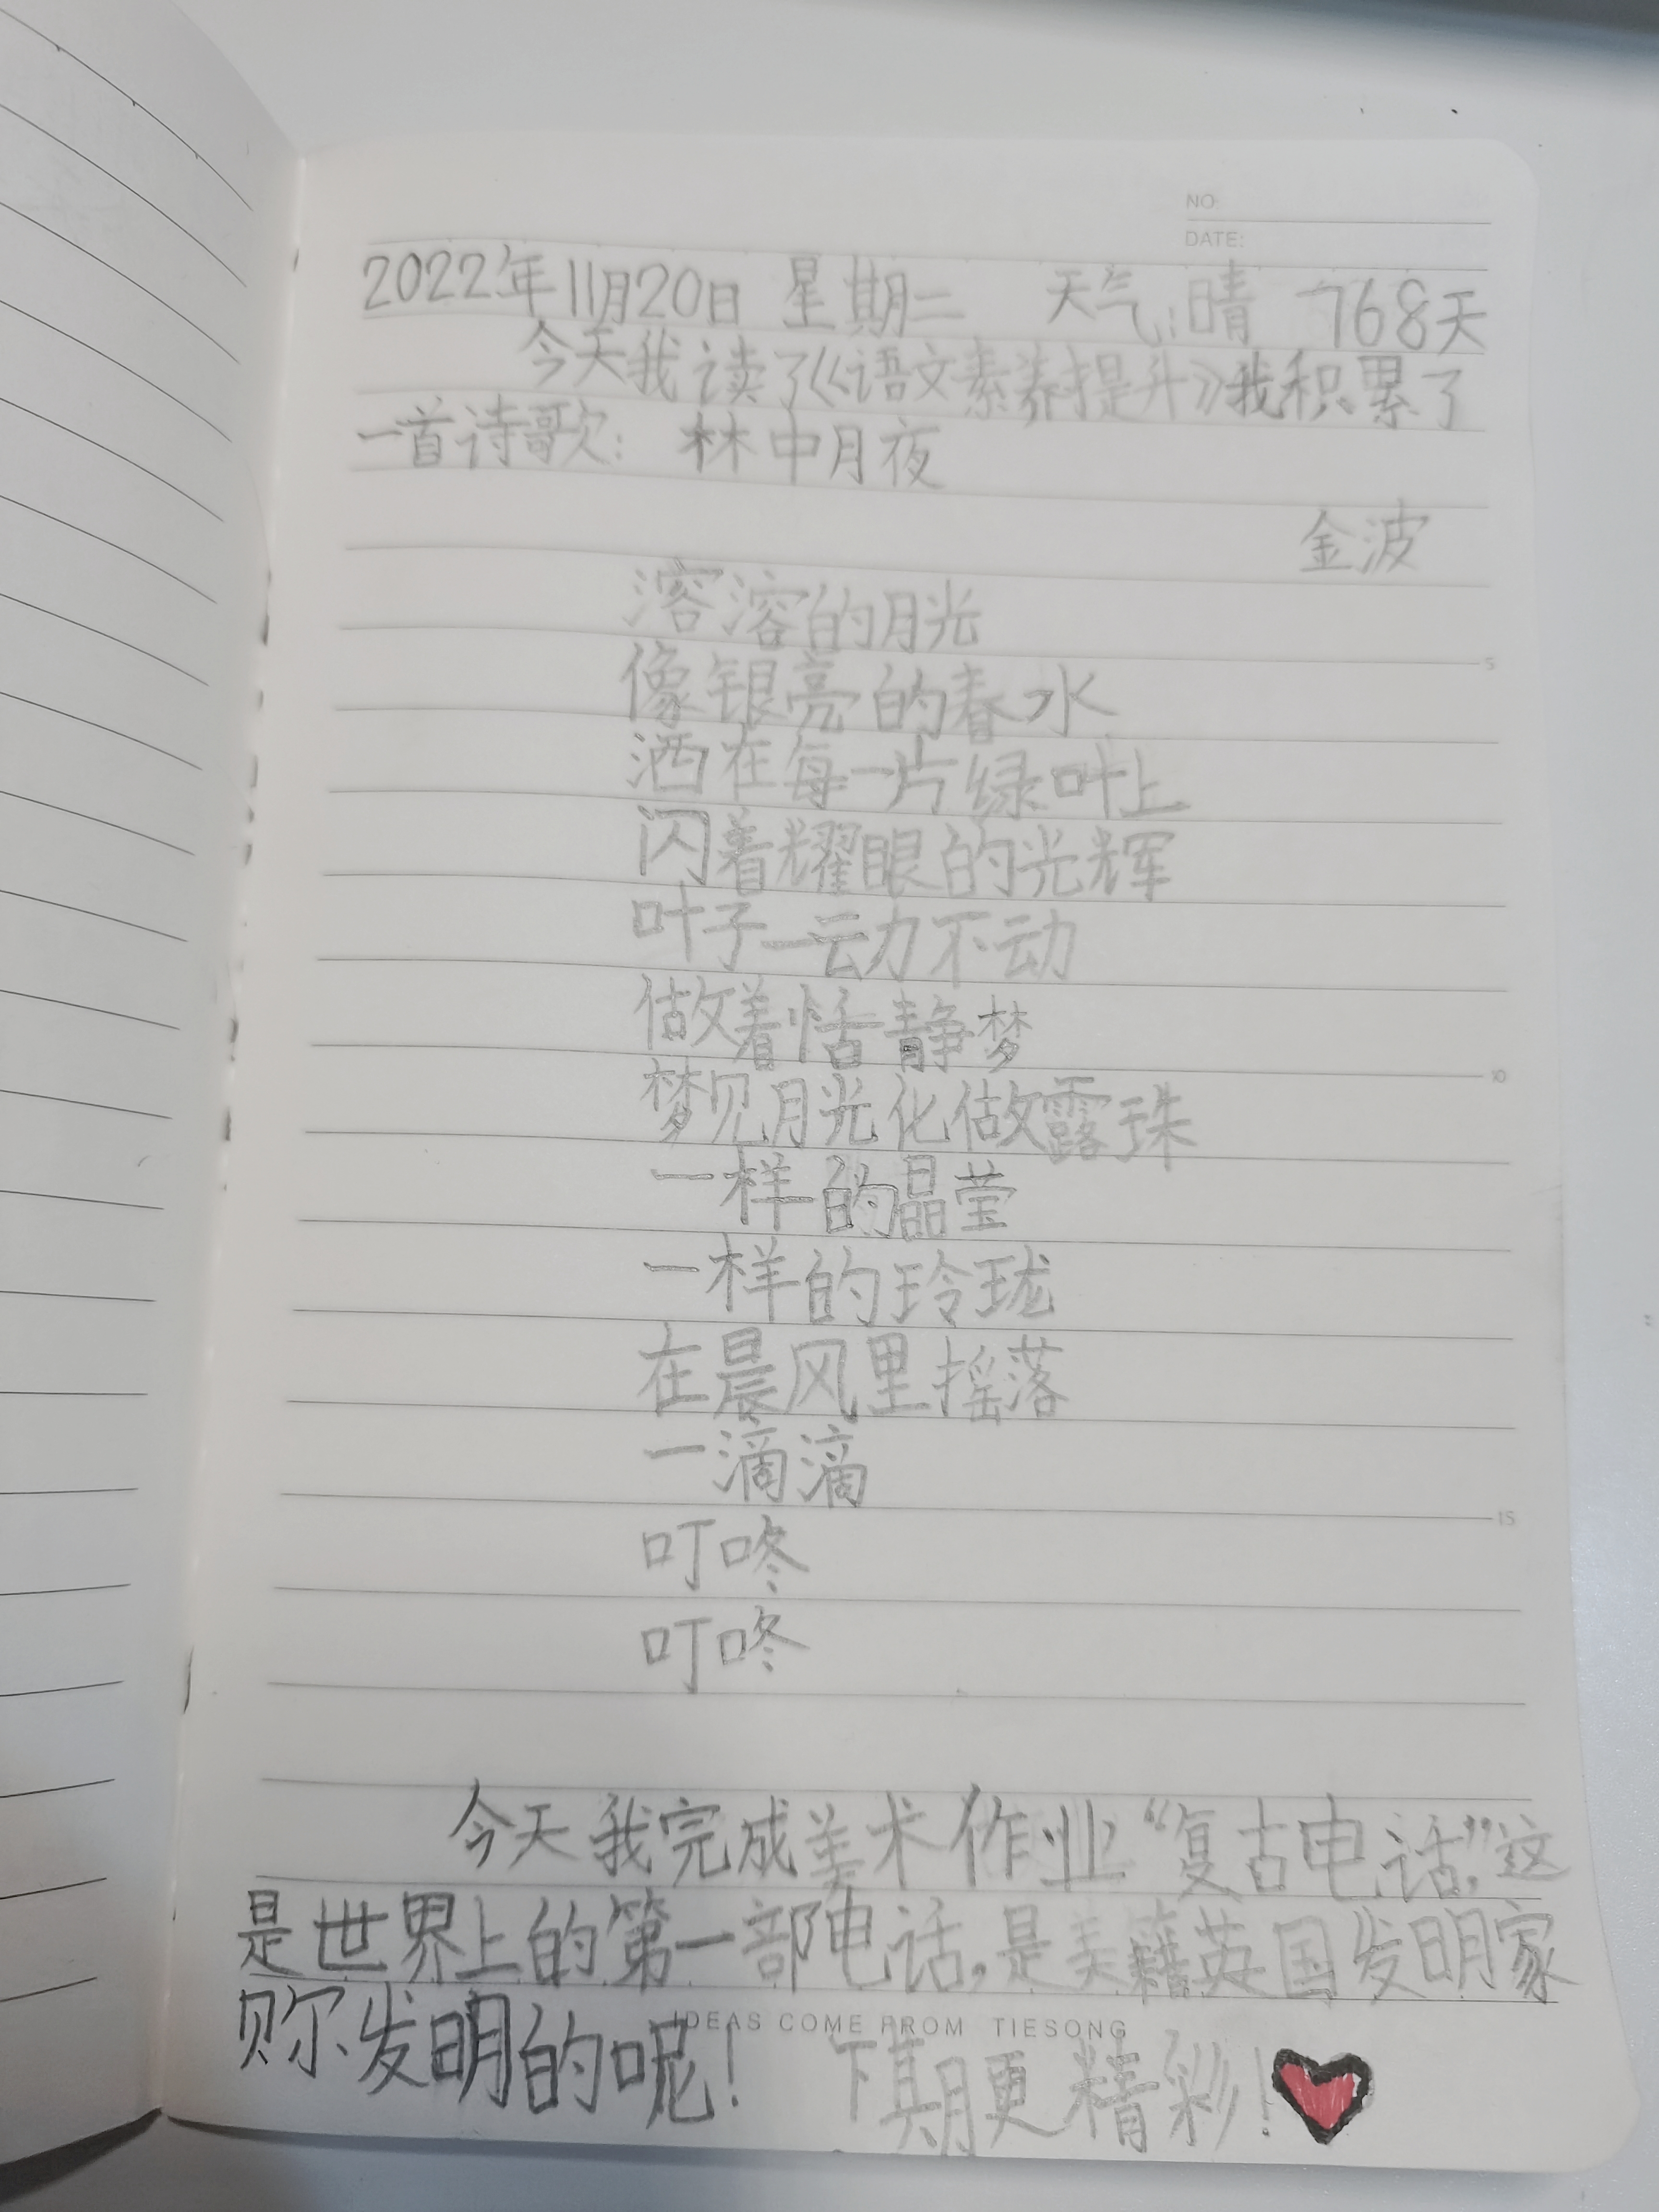 NO
DATE:
2022年11月20日 星期二 天气:晴 768天
今天我读了《语文素养提升》我积累了
一首诗歌: 林中月夜
金波
溶溶的月光
像银亮的春水
5
洒在每一片绿叶上
闪着耀眼的光辉
叶子一动不动
做着恬静梦
10
梦见月光化做露珠
一样的晶莹
一样的玲珑
在晨风里摇落
一滴滴
15
叮咚
叮咚
今天我完成美术作业“复古电话”,这
是世界上的第一部电话,是美籍英国发明家
贝尔发明的呢!
IDEAS COME FROM TIESONG
下期更精彩!